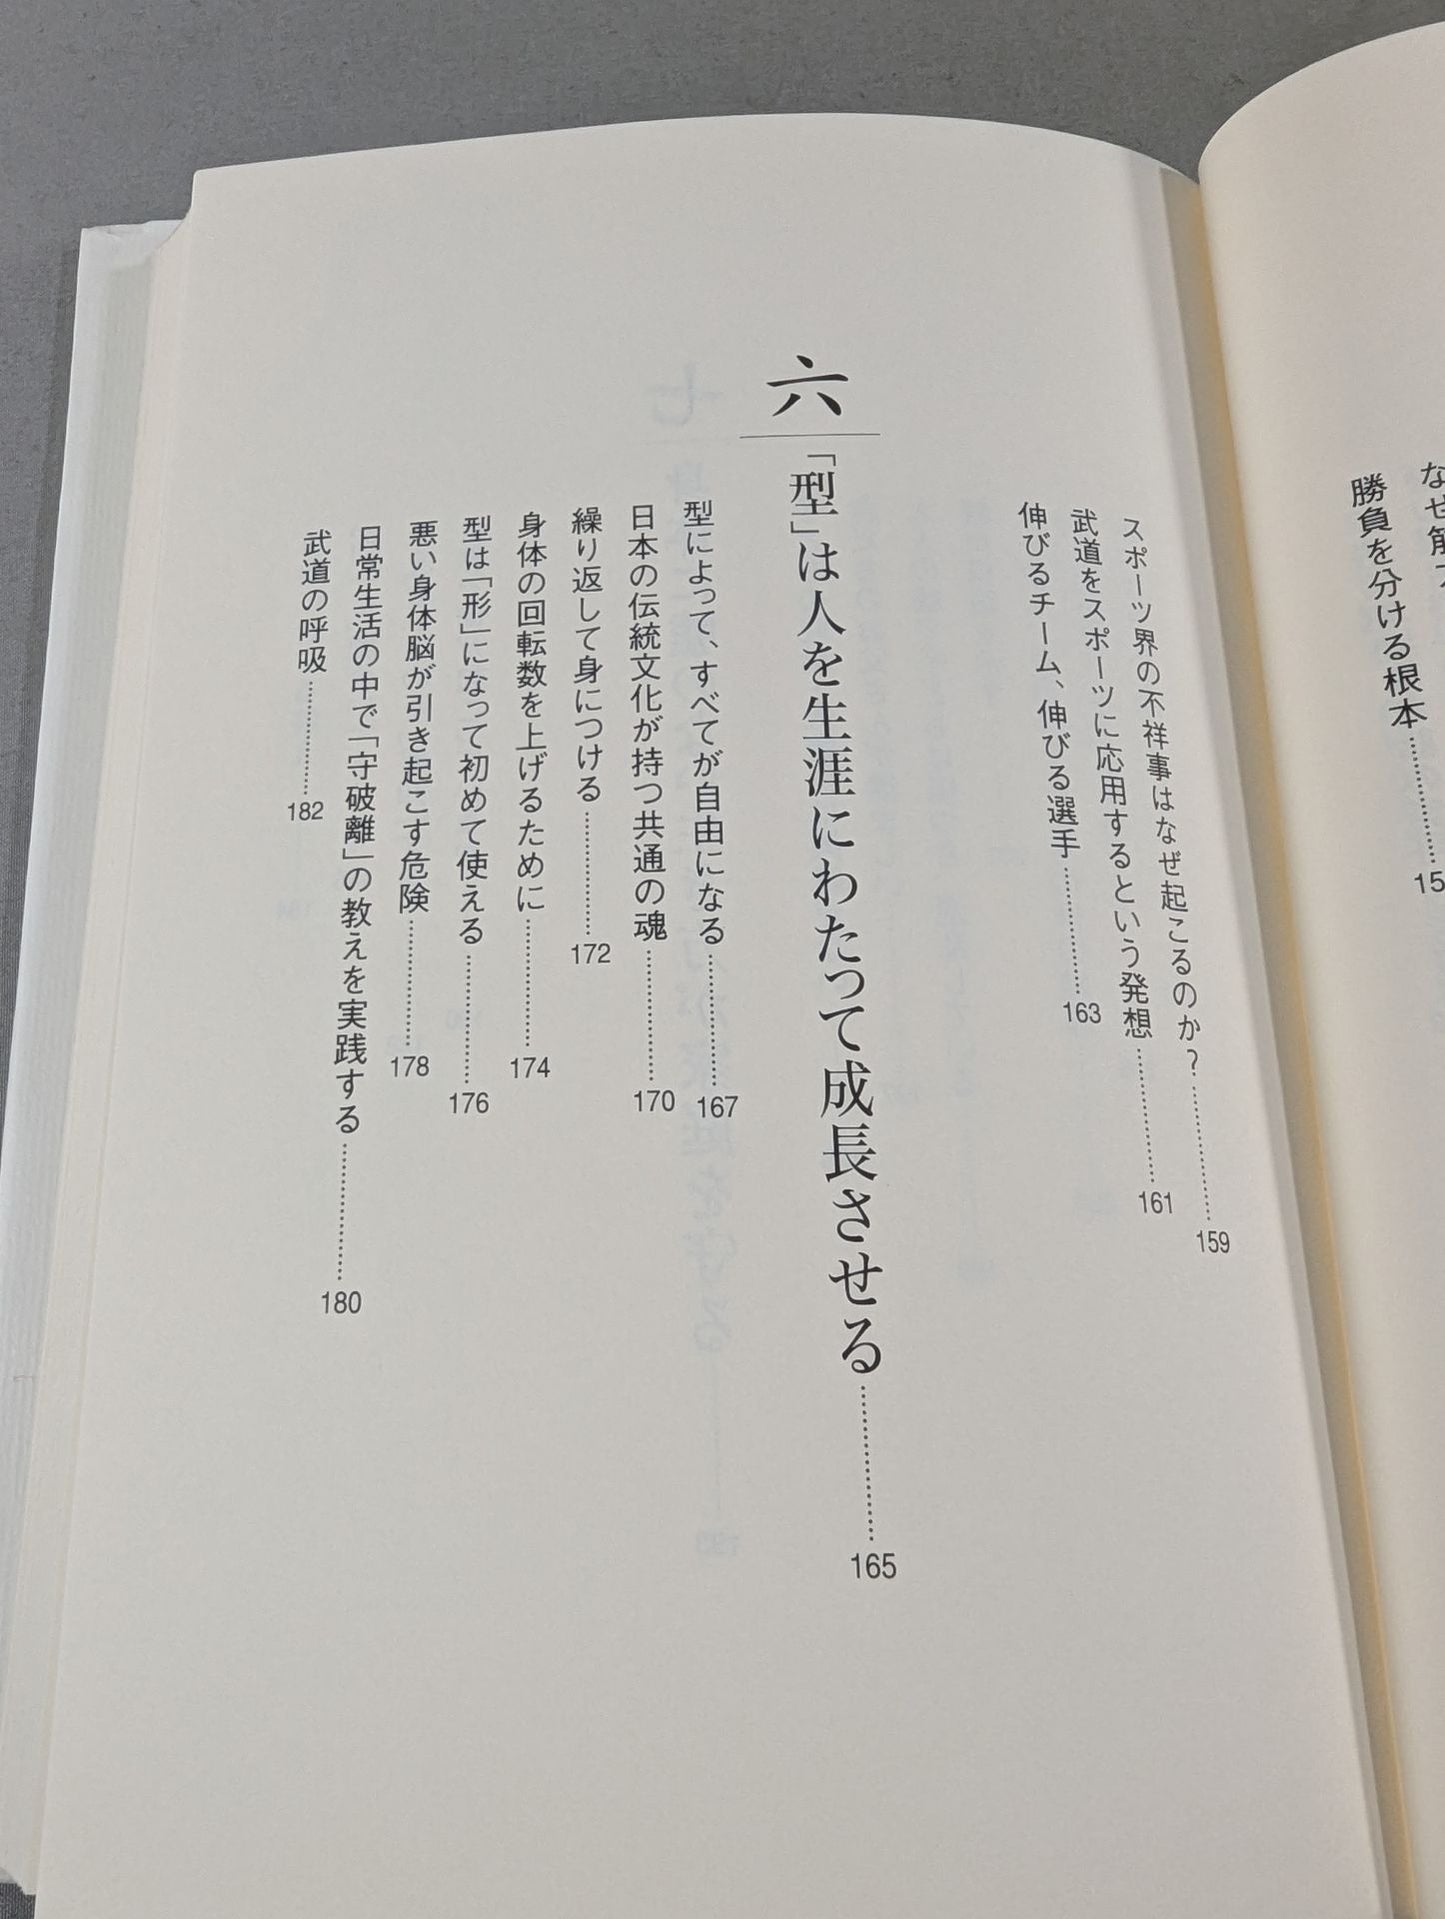 勝負を分ける根本
スポーツ界の不祥事はなぜ起こるのか？ 159
武道をスポーツに応用するという発想 161
伸びるチーム、伸びる選手 163
六 「型」は人を生涯にわたって成長させる 165
型によって、すべてが自由になる 167
日本の伝統文化が持つ共通の魂 170
繰り返して身につける 172
身体の回転数を上げるために 174
型は「形」になって初めて使える 176
悪い身体脳が引き起こす危険 178
日常生活の中で「守破離」の教えを実践する 180
武道の呼吸 182